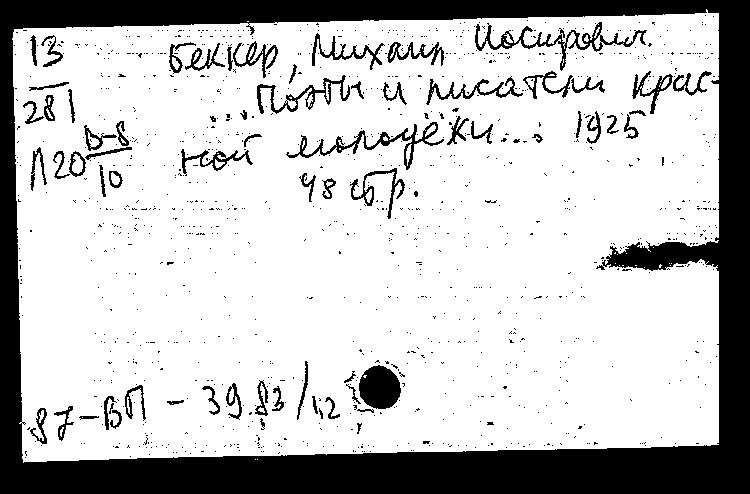 13 Беккер, Михаил Иосифович.
281 ...Поэты и писатели крас-
Л20 В-8/10 ной молодёжи...: 1925
48 стр.
87-ВП - 39.83/12